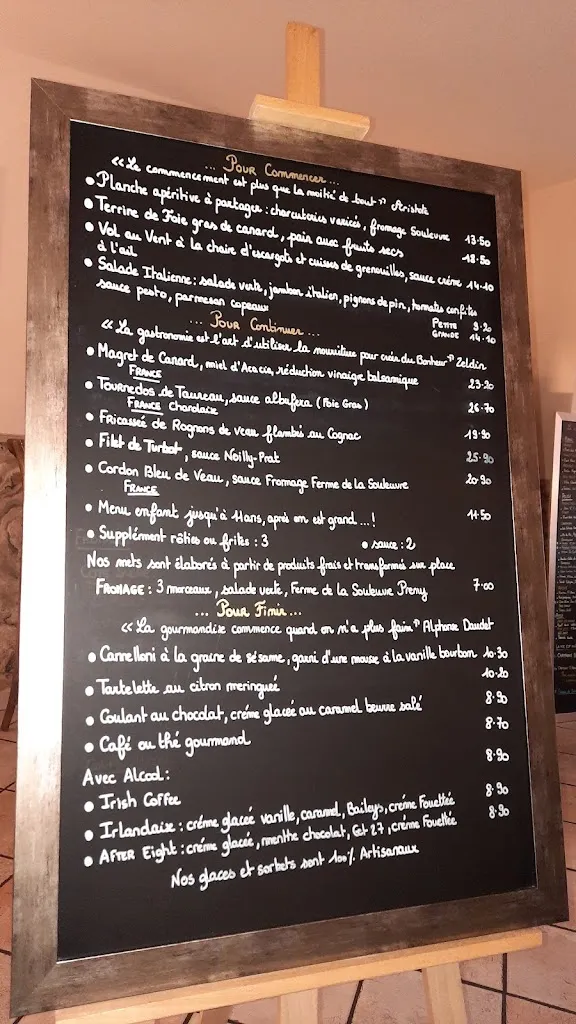 ... Pour Commencer ...
"Le commencement est plus que la moitié de tout" Aristote
• Planche apéritive à partager : charcuteries variées, fromage Souleuvre 13.50
• Terrine de Foie gras de canard, pain aux fruits secs 18.50
• Vol au Vent à la chaire d'escargots et cuisses de grenouilles, sauce crème 14.10
à l'ail
• Salade Italienne : salade verte, jambon italien, pignons de pin, tomates confites
sauce pesto, parmesan copeaux PETITE 9.20
GRANDE 14.10
... Pour Continuer ...
"La gastronomie est l'art d'utiliser la nourriture pour créer du Bonheur" Zeldin
• Magret de Canard, miel d'Acacia, réduction vinaigre balsamique 23.20
FRANCE
• Tournedos de Taureau, sauce albufera (Foie Gras) 26.70
FRANCE Charolaise
• Fricassée de Rognons de veau flambés au Cognac 19.90
• Filet de Turbot, sauce Noilly-Prat 25.90
• Cordon Bleu de Veau, sauce Fromage Ferme de la Souleuvre 20.90
FRANCE
• Menu enfant jusqu'à 11ans, après on est grand...! 11.50
• Supplément rôties ou frites : 3 • sauce : 2
Nos mets sont élaborés à partir de produits frais et transformés sur place
FROMAGE : 3 morceaux, salade verte, Ferme de la Souleuvre Preny 7.00
... Pour Finir ...
"La gourmandise commence quand on n'a plus faim" Alphonse Daudet
• Cannelloni à la graine de sésame, garni d'une mousse à la vanille bourbon 10.30
• Tartelette au citron meringuée 10.20
• Coulant au chocolat, crème glacée au caramel beurre salé 8.90
• Café ou thé gourmand 8.70
Avec Alcool :
• Irish Coffee 8.90
• Irlandaise : crème glacée vanille, caramel, Baileys, crème Fouettée 8.90
• AFTER Eight : crème glacée, menthe chocolat, Get 27, crème Fouettée 8.90
Nos glaces et sorbets sont 100% Artisanaux